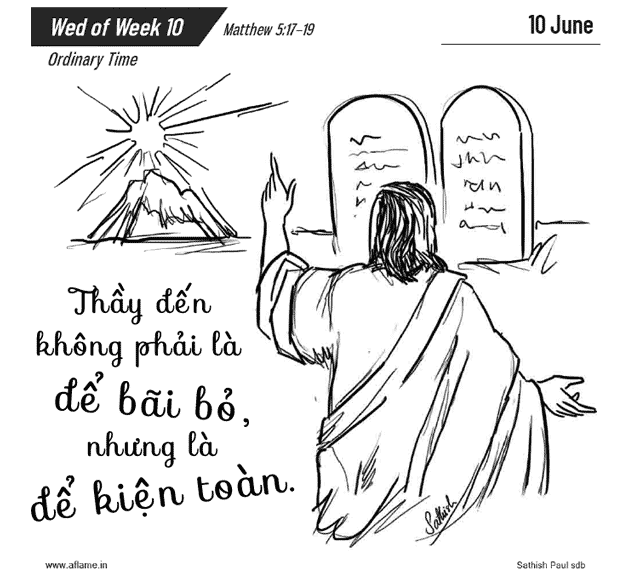 Wed of Week 10
Matthew 5:17–19
10 June
Ordinary Time
Thầy đến
không phải là
để bãi bỏ,
nhưng là
để kiện toàn.
Sathish
www.aflame.in
Sathish Paul sdb